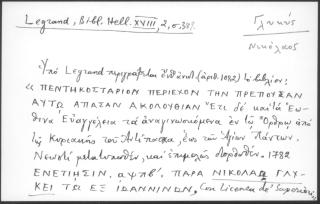 Legrand, Bibl. Hell. XVIII, 2, σ. 389.
Γλυκύς
Νικόλαος
Ὑπὸ Legrand περιγράφεται ἐνθ' ἀνωτ. (ἀριθ. 1082) τὸ βιβλίον:
« ΠΕΝΤΗΚΟΣΤΑΡΙΟΝ ΠΕΡΙΕΧΟΝ ΤΗΝ ΠΡΕΠΟΥΣΑΝ
ΑΥΤΩ ΑΠΑΣΑΝ ΑΚΟΛΟΥΘΙΑΝ Ἔτι δὲ καὶ τὰ Ἑω-
θινὰ Εὐαγγέλια τὰ ἀναγινωσκόμενα ἐν τῷ Ὄρθρῳ, ἀπὸ
τῆς Κυριακῆς τοῦ Ἀντίπασχα, ἕως τῶν Ἁγίων Πάντων.
Νεωστὶ μετατυπωθέν, καὶ ἐπιμελῶς διορθωθέν. 1782
ΕΝΕΤΙΗΣΙΝ. αψπβ'. ΠΑΡΑ ΝΙΚΟΛΑΩ ΓΛΥ-
ΚΕΙ ΤΩ ΕΞ ΙΩΑΝΝΙΝΩΝ. Con Licenza de' Superiori